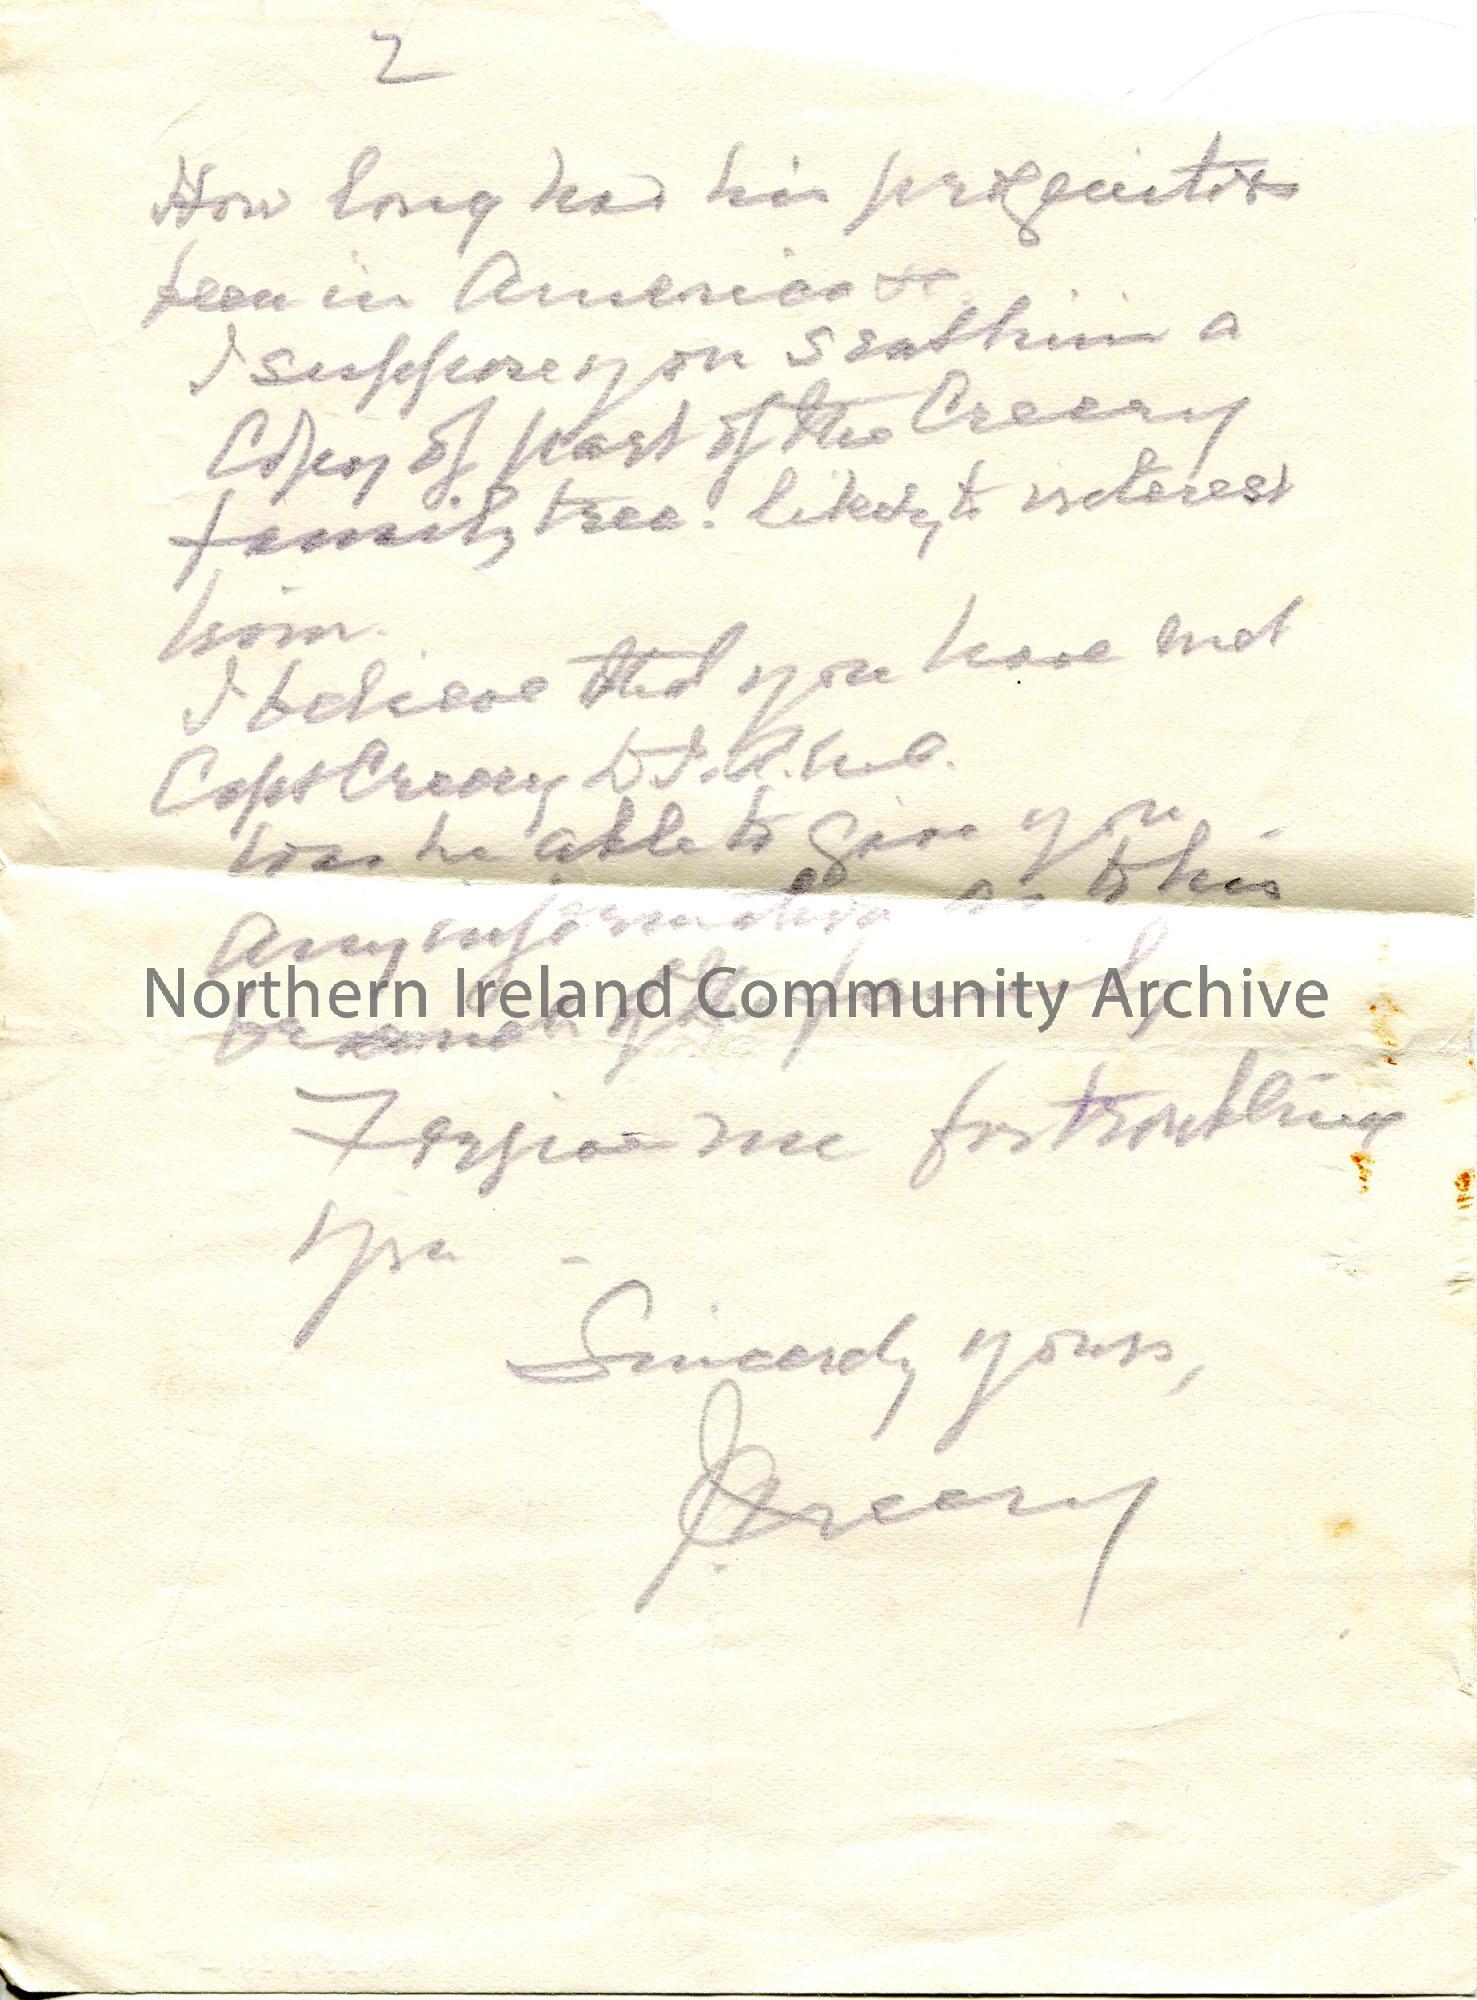 2
How long has his progenitors
been in America &c.
I suppose you sent him a
Copy of part of the Creery
family tree. likely to interest
him.
I believe that you have met
Capt Creery D.I.R.U.C.
was he able to give you
any information as to his
branch of the family
Northern Ireland Community Archive
Forgive me for troubling
you -
Sincerely yours,
J. Creery